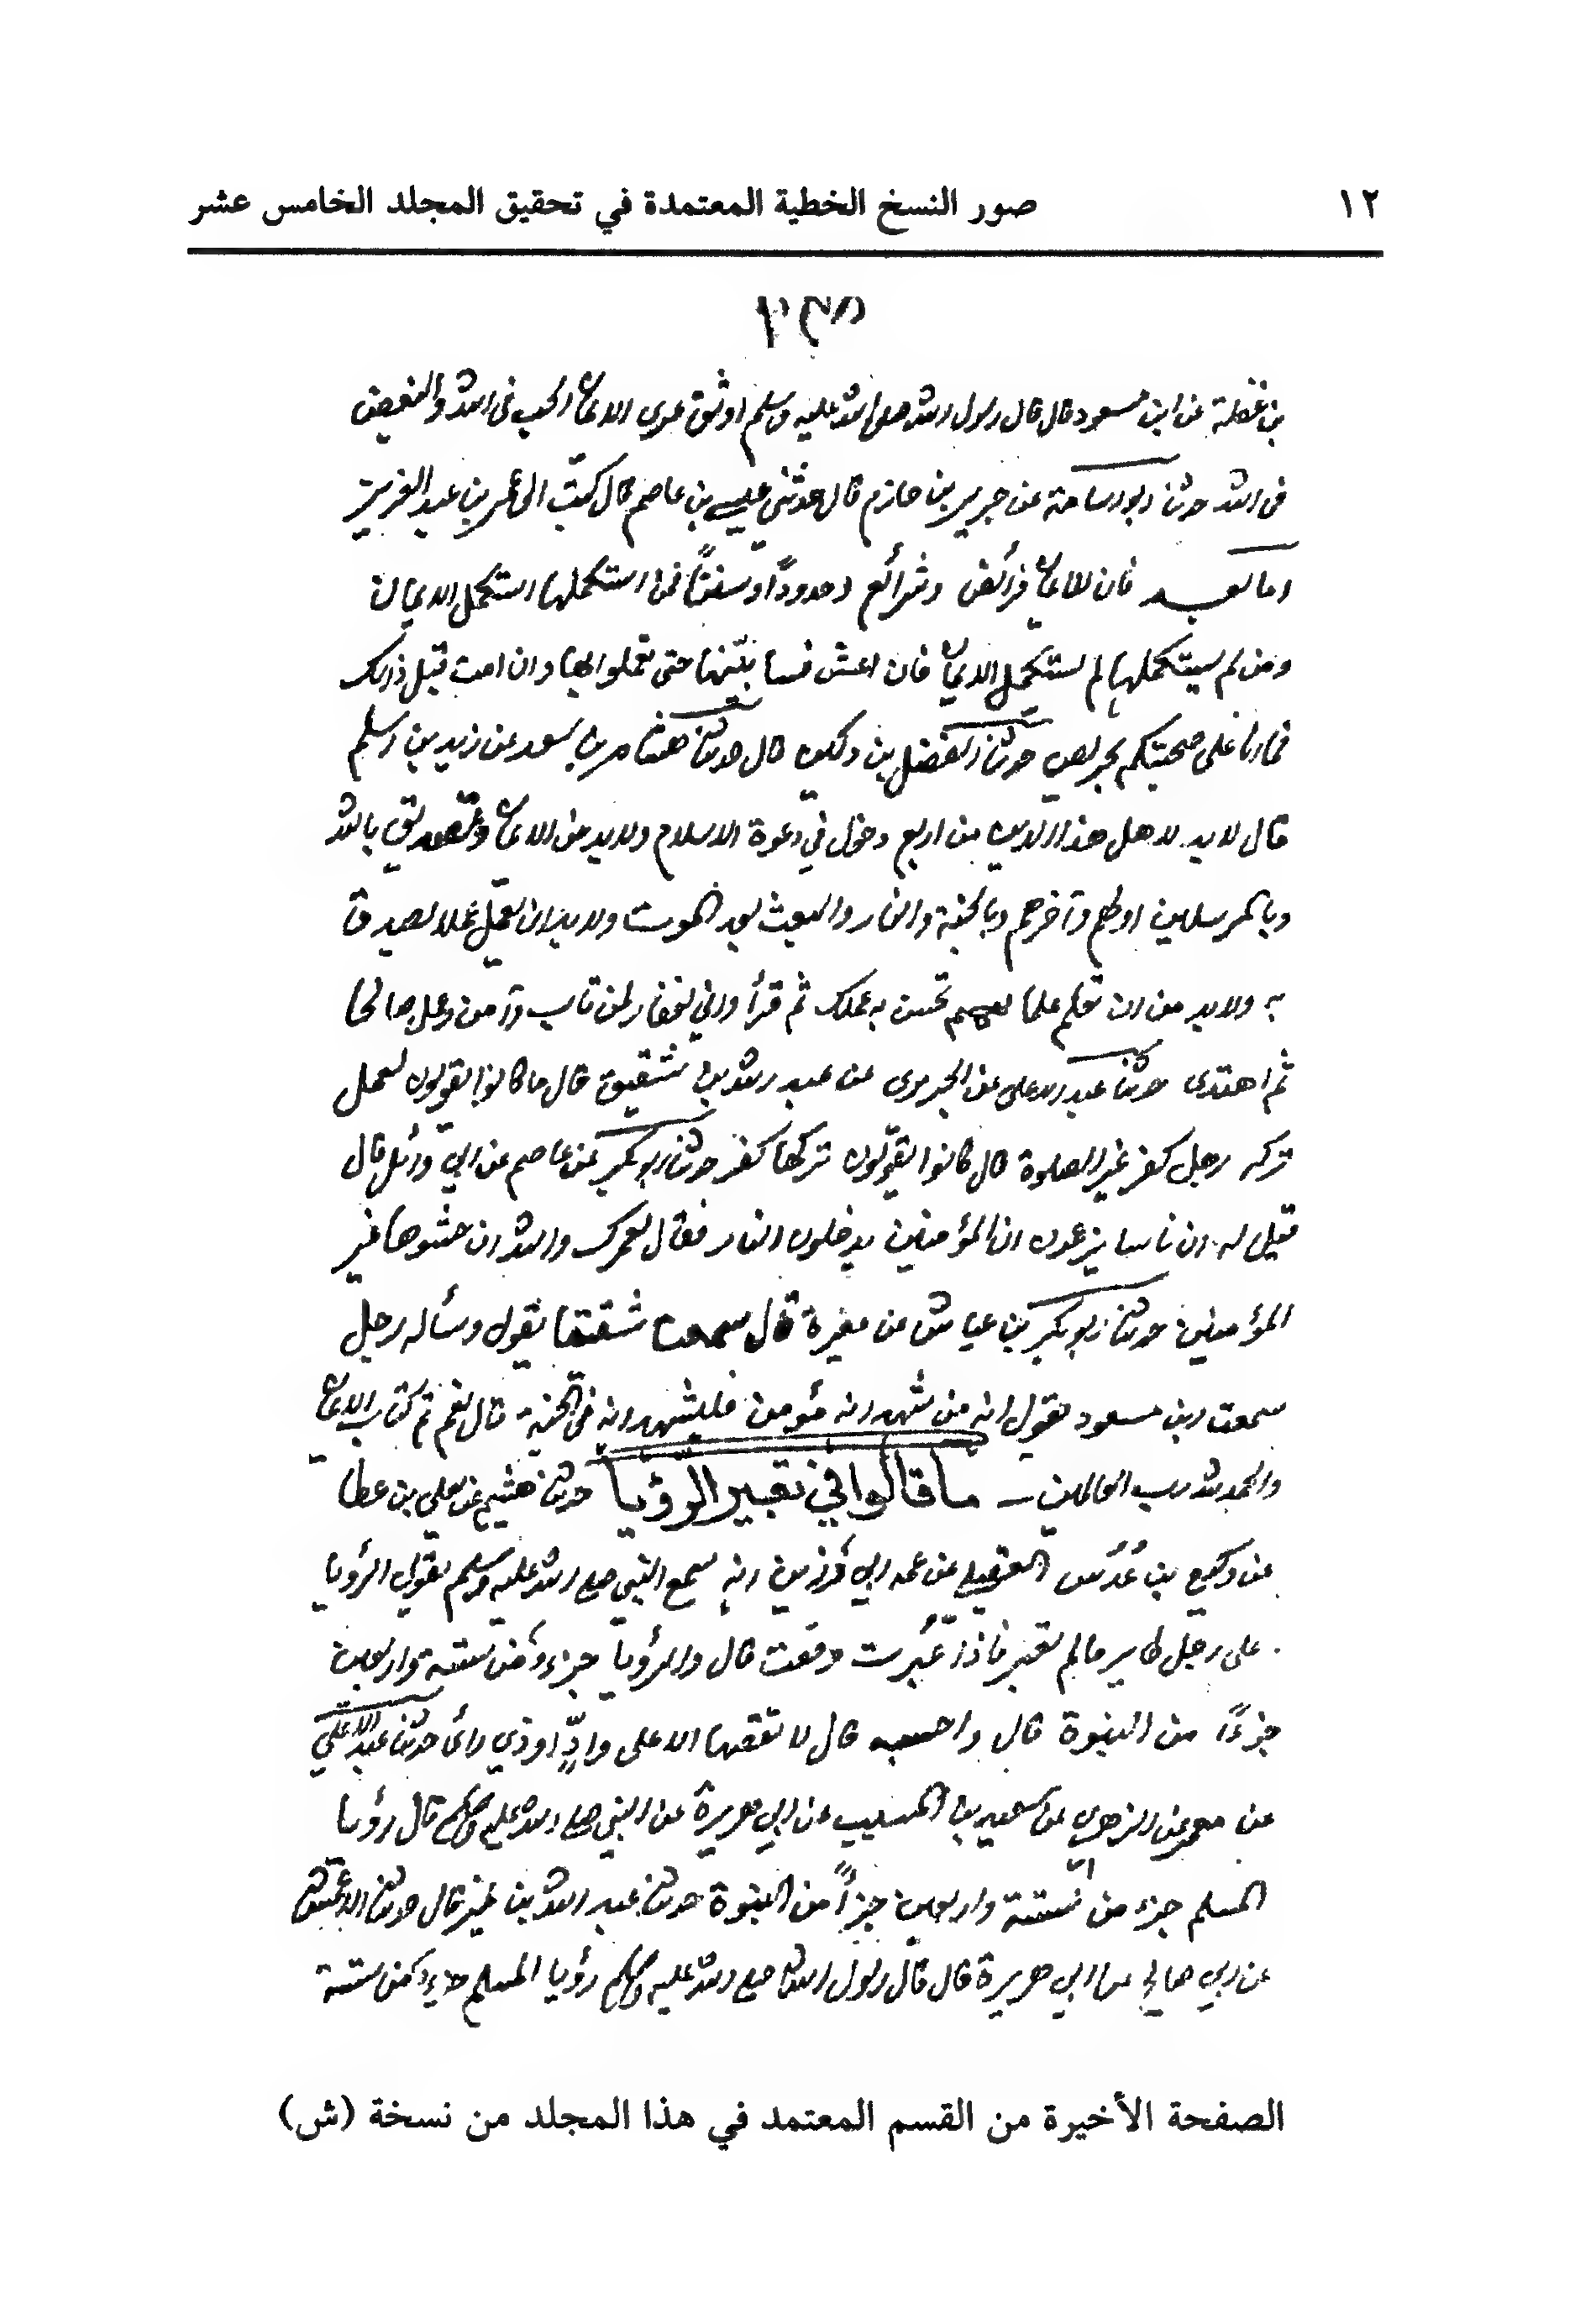 ١٢
صور النسخ الخطية المعتمدة في تحقيق المجلد الخامس عشر
بن غفلة عن ابن مسعود قال قال رسول الله صلى الله عليه وسلم اوثق عرى الايمان الحب في الله والبغض
في الله حدثنا ابو اسامة عن جرير بن حازم قال حدثني عيسى بن عاصم قال كتب الى عمر بن عبد العزيز
اما بعد فان للايمان فرائض وشرائع وحدوداً وسننًا فمن استكملها استكمل الايمان
ومن لم يستكملها لم يستكمل الايمان فان اعش فسأبينها حتى تعملوا بها وان امت قبل ذلك
فما انا على صحبتكم بحريص حدثنا الفضل بن دكين قال حدثنا هشام بن سعد عن زيد بن اسلم
قال لابد لاهل هذا الدين من اربع دخول في دعوة الاسلام ولابد من الايمان وتصديق بالله
وبالمرسلين اولهم وآخرهم وبالجنة والنار والبعث بعد الموت ولابد ان تعمل عملا تصدق
به ولابد من ان تعلم علما تحسن به عملك ثم قرأ واني لغفار لمن تاب وآمن وعمل صالحا
ثم اهتدى حدثنا عبد الاعلى عن الجريرى عن عبد الله بن شقيق قال ما كانوا يقولون لعمل
تركه رجل كفر غير الصلوة قال كانوا يقولون تركها كفر حدثنا ابو بكر عن عاصم عن ابي وائل قال
قيل له ان ناسا يزعمون ان المؤمنين يدخلون النار فقال لعمرك والله ان حشوها غير
المؤمنين حدثنا ابو بكر بن عياش عن مغيرة قال سمعت شقيقا يقول وسأله رجل
سمعت ابن مسعود يقول انه من شهد انه مؤمن فليشهد انه في الجنة قال نعم تم كتاب الايمان
والحمد لله رب العالمين ــ ما قالوا في تعبير الرؤيا حدثنا هشيم عن يعلى بن عطا
عن وكيع بن عُدُس العقيلي عن عمه ابي رزين انه سمع النبي صلى الله عليه وسلم يقول الرؤيا
على رجل طاير ما لم تعبر فاذا عُبرت وقعت قال والرؤيا جزء من ستة واربعين
جزءًا من النبوة قال واحسبه قال لا تقصها الا على وادٍّ او ذي رائ حدثنا عبد الاعلى
عن معمر عن الزهري عن سعيد بن المسيب عن ابي هريرة عن النبي صلى الله عليه وسلم قال رؤيا
المسلم جزء من ستة واربعين جزأً من النبوة حدثنا عبد الله بن نمير قال حدثنا الاعمش
عن ابي صالح عن ابي هريرة قال قال رسول الله صلى الله عليه وسلم رؤيا المسلم جزء من ستة
الصفحة الأخيرة من القسم المعتمد في هذا المجلد من نسخة (ش)